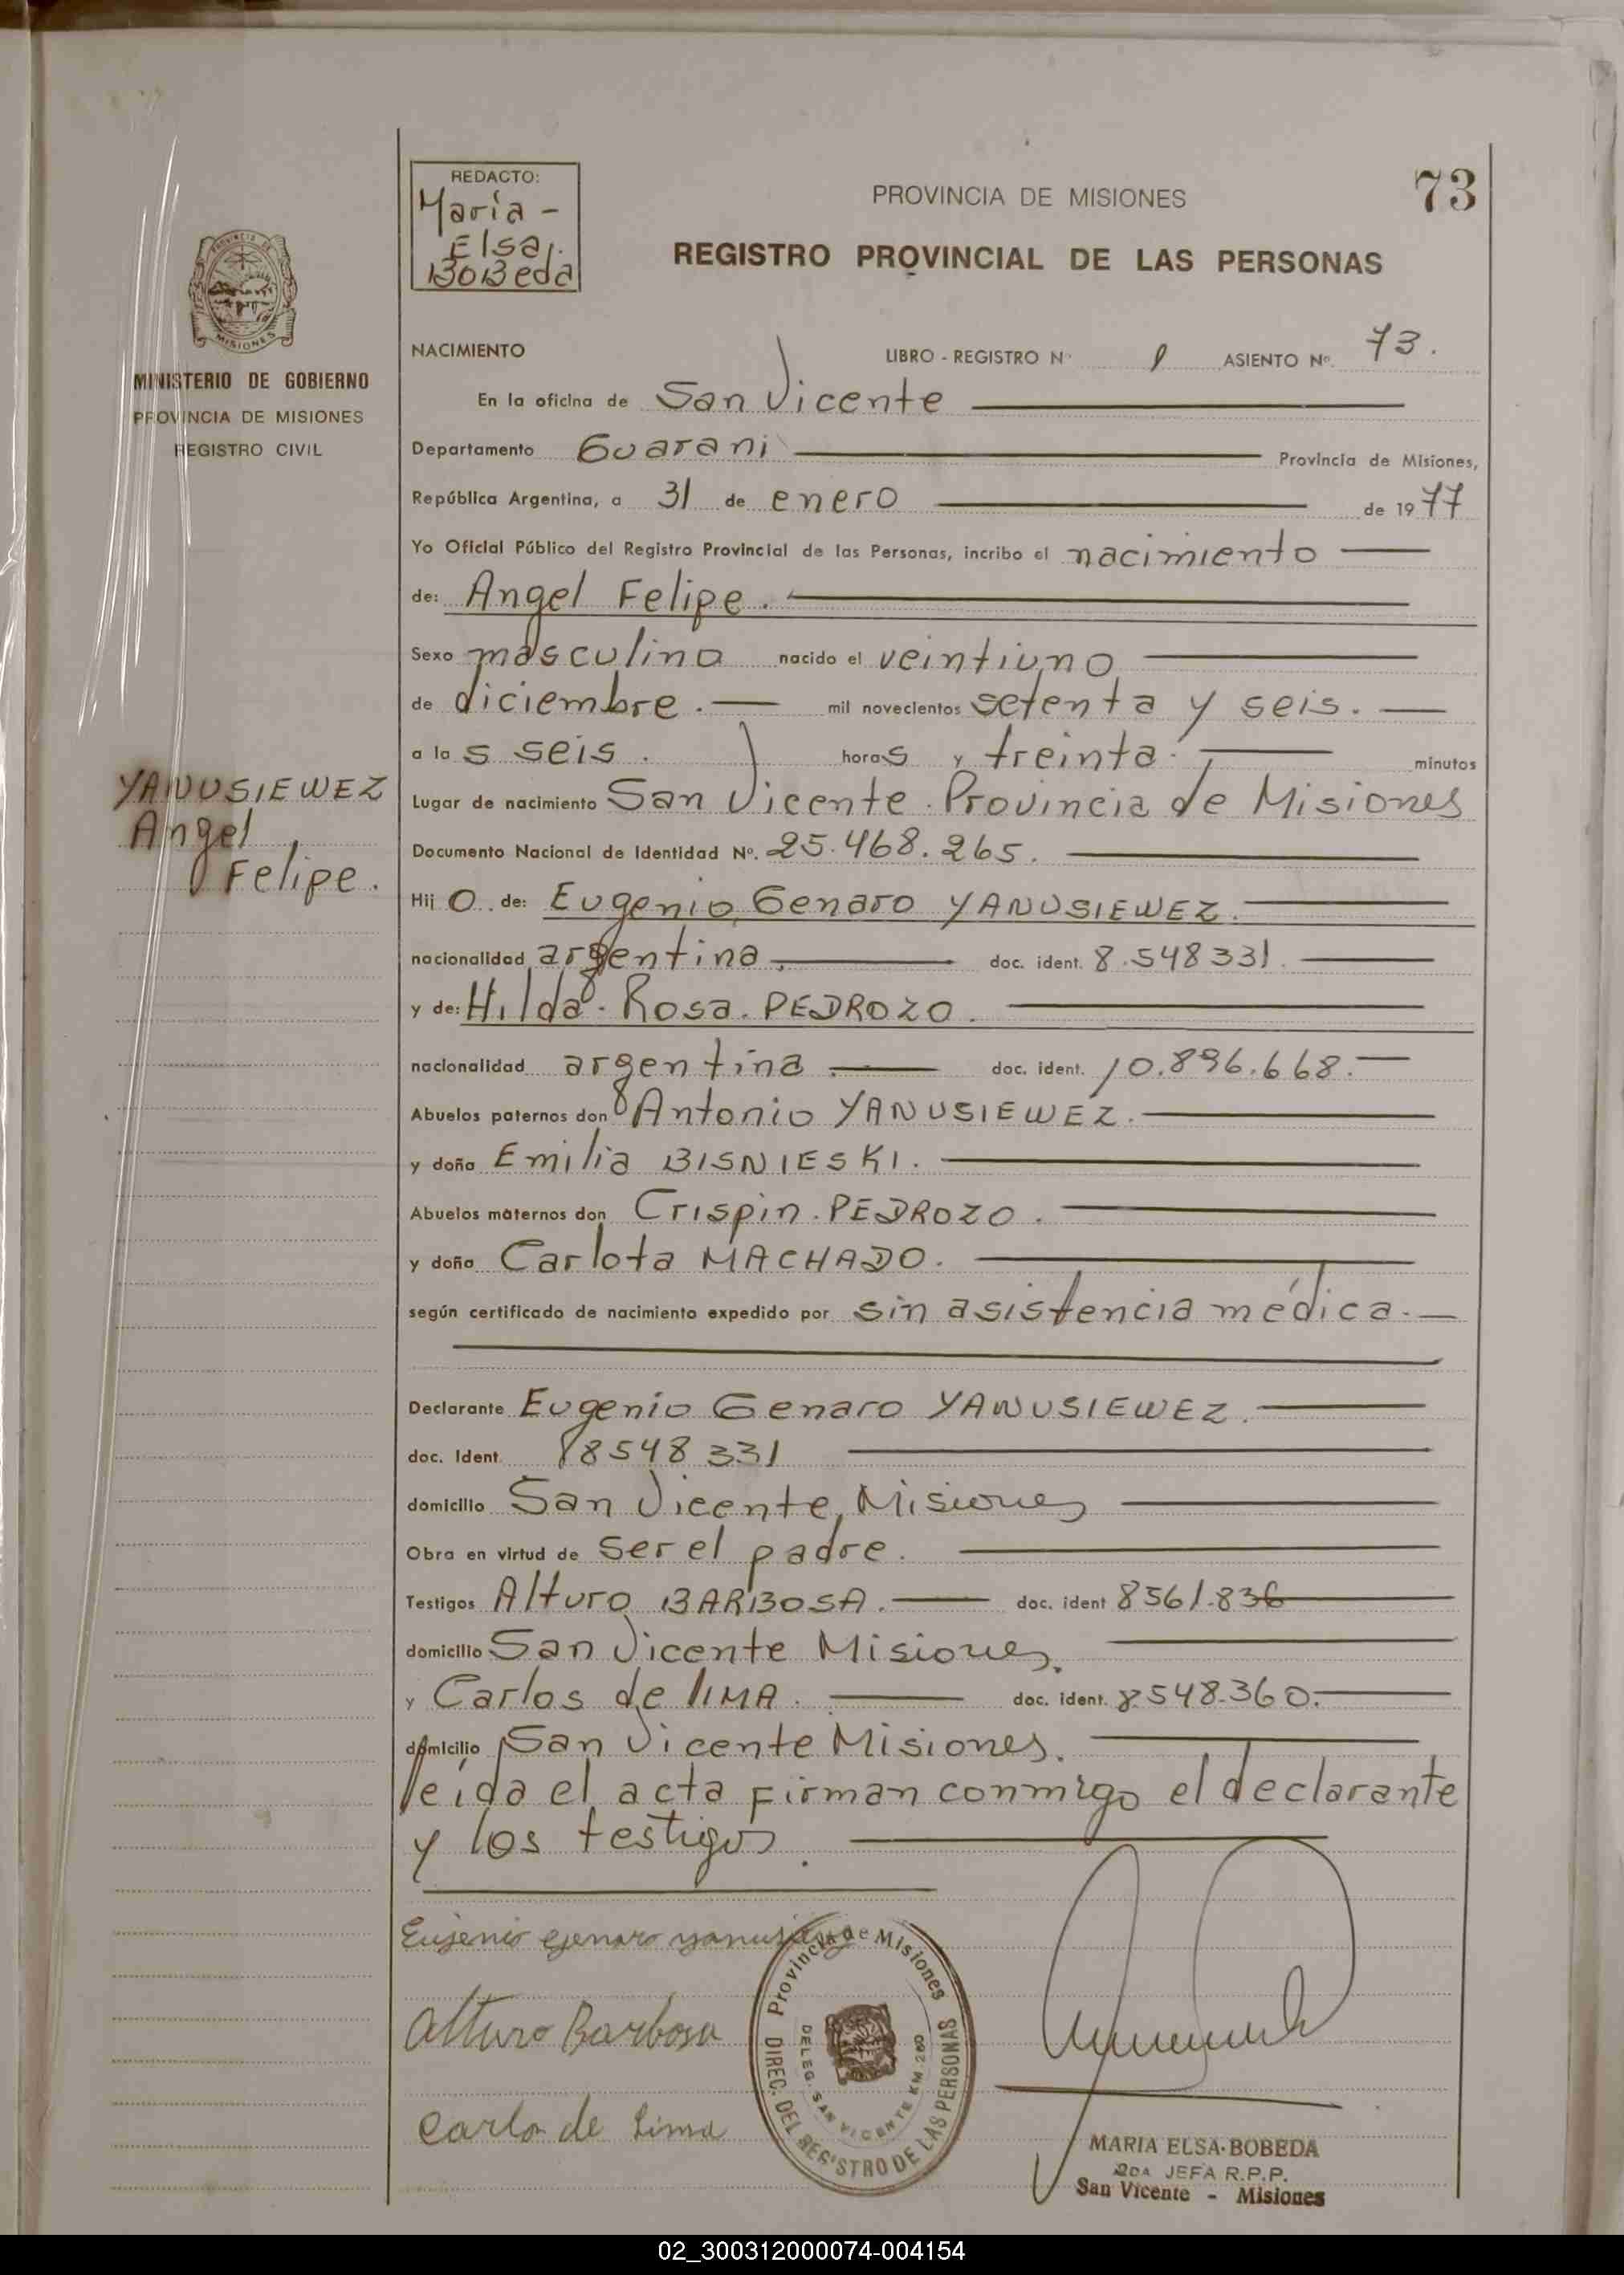 REDACTO:
Maria -
Elsa.
BoBeda
PROVINCIA DE MISIONES
73
REGISTRO PROVINCIAL DE LAS PERSONAS
PROVINCIA DE
MISIONES
MINISTERIO DE GOBIERNO
PROVINCIA DE MISIONES
REGISTRO CIVIL
NACIMIENTO LIBRO - REGISTRO Nº 1 ASIENTO Nº. 73.
En la oficina de San Vicente
Departamento Guarani Provincia de Misiones,
República Argentina, a 31 de enero de 1977
Yo Oficial Público del Registro Provincial de las Personas, incribo el nacimiento
de: Angel Felipe.
Sexo masculino nacido el veintiuno
de diciembre. mil novecientos setenta y seis.
a las seis. horas y treinta. minutos
Lugar de nacimiento San Vicente. Provincia de Misiones
YANUSIEWEZ
Angel
Felipe.
Documento Nacional de Identidad Nº. 25.468.265.
Hijo de: Eugenio Genaro YANUSIEWEZ.
nacionalidad argentina. doc. ident. 8.548331.
y de: Hilda. Rosa. PEDROZO.
nacionalidad argentina. doc. ident. 10.896.668.
Abuelos paternos don Antonio YANUSIEWEZ.
y doña Emilia BISNIESKI.
Abuelos maternos don Crispin. PEDROZO.
y doña Carlota MACHADO.
según certificado de nacimiento expedido por sin asistencia médica.
Declarante Eugenio Genaro YANUSIEWEZ.
doc. Ident. 8548331
domicilio San Vicente, Misiones
Obra en virtud de ser el padre.
Testigos Alturo BARBOSA. doc. ident 8561.836
domicilio San Vicente Misiones.
y Carlos de lIMA. doc. ident. 8.548.360.
domicilio San Vicente Misiones.
leida el acta firman conmigo el declarante
y los testigos.
Eujenio genaro
Alturo Barbosa
Carlo de lima
Provincia de Misiones
DIREC. DEL REGISTRO DE LAS PERSONAS
DELEG. SAN VICENTE KM. 260
MARIA ELSA BOBEDA
2DA JEFA R.P.P.
San Vicente - Misiones
02_300312000074-004154